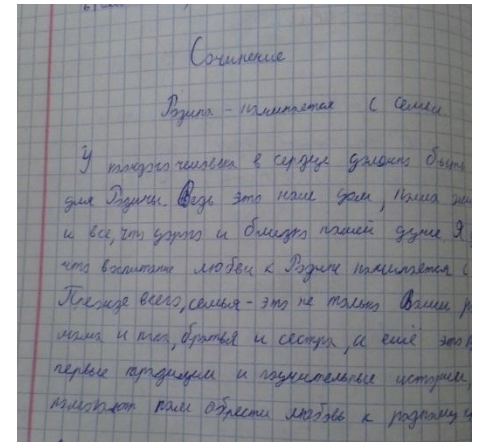 Сочинение
Родина - начинается с семьи
У каждого человека в сердце должно быть
для Родины. Ведь это наш дом, наша
и все, что дорого и близко нашей душе Я
что воспитание любви к Родине начинается с
Прежде всего, семья - это не только Ваши
мама и папа, братья и сестра, и ещё это
первые традиции и поучительные истории,
помогают нам обрести любовь к родному